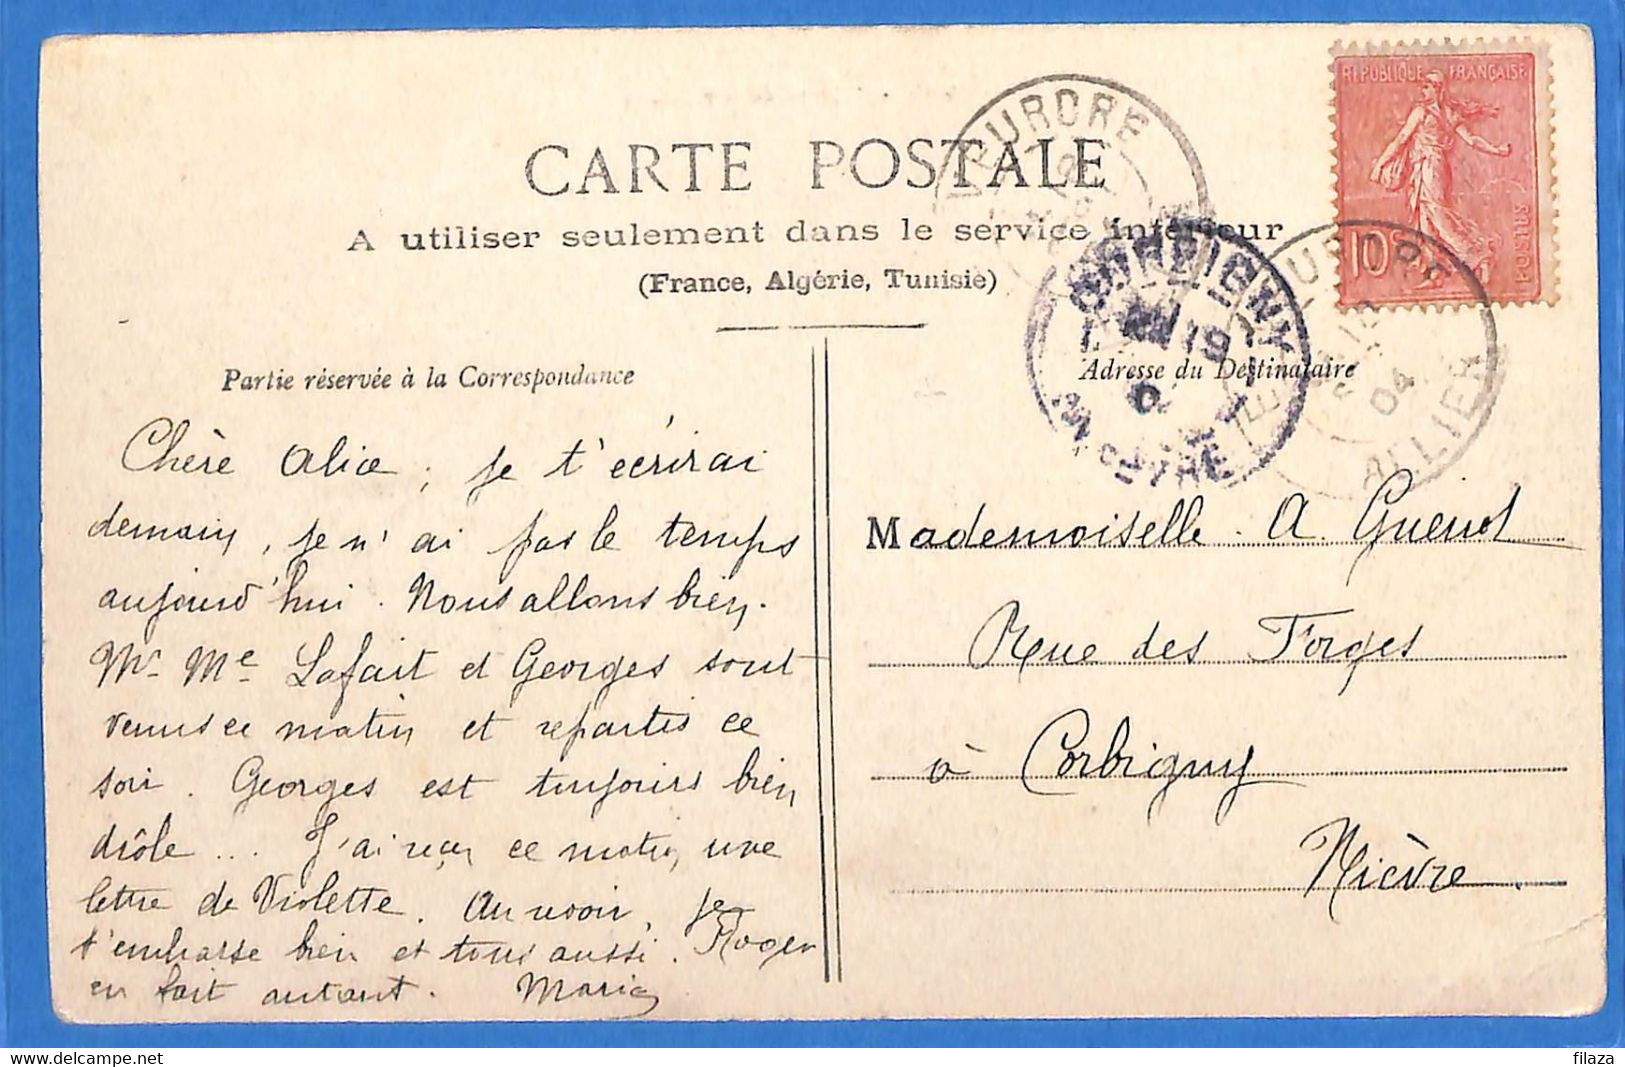 RÉPUBLIQUE FRANÇAISE
10 POSTES
CARTE POSTALE
A utiliser seulement dans le service intérieur
(France, Algérie, Tunisie)
VEURDRE
CORBIGNY
NIÈVRE
04
ALLIER
Partie réservée à la Correspondance
Chère Alice, je t'écrirai
demain, je n'ai pas le temps
aujourd'hui. Nous allons bien.
Mr Me Lafait et Georges sont
venus ce matin et repartis ce
soir. Georges est toujours bien
drôle... J'ai reçu ce matin, une
lettre de Violette. Au revoir, je
t'embrasse bien et tous aussi. Roger
en fait autant. Maria
Adresse du Destinataire
Mademoiselle. A. Guenot
Rue des Forges
à Corbigny
Nièvre.
filaza